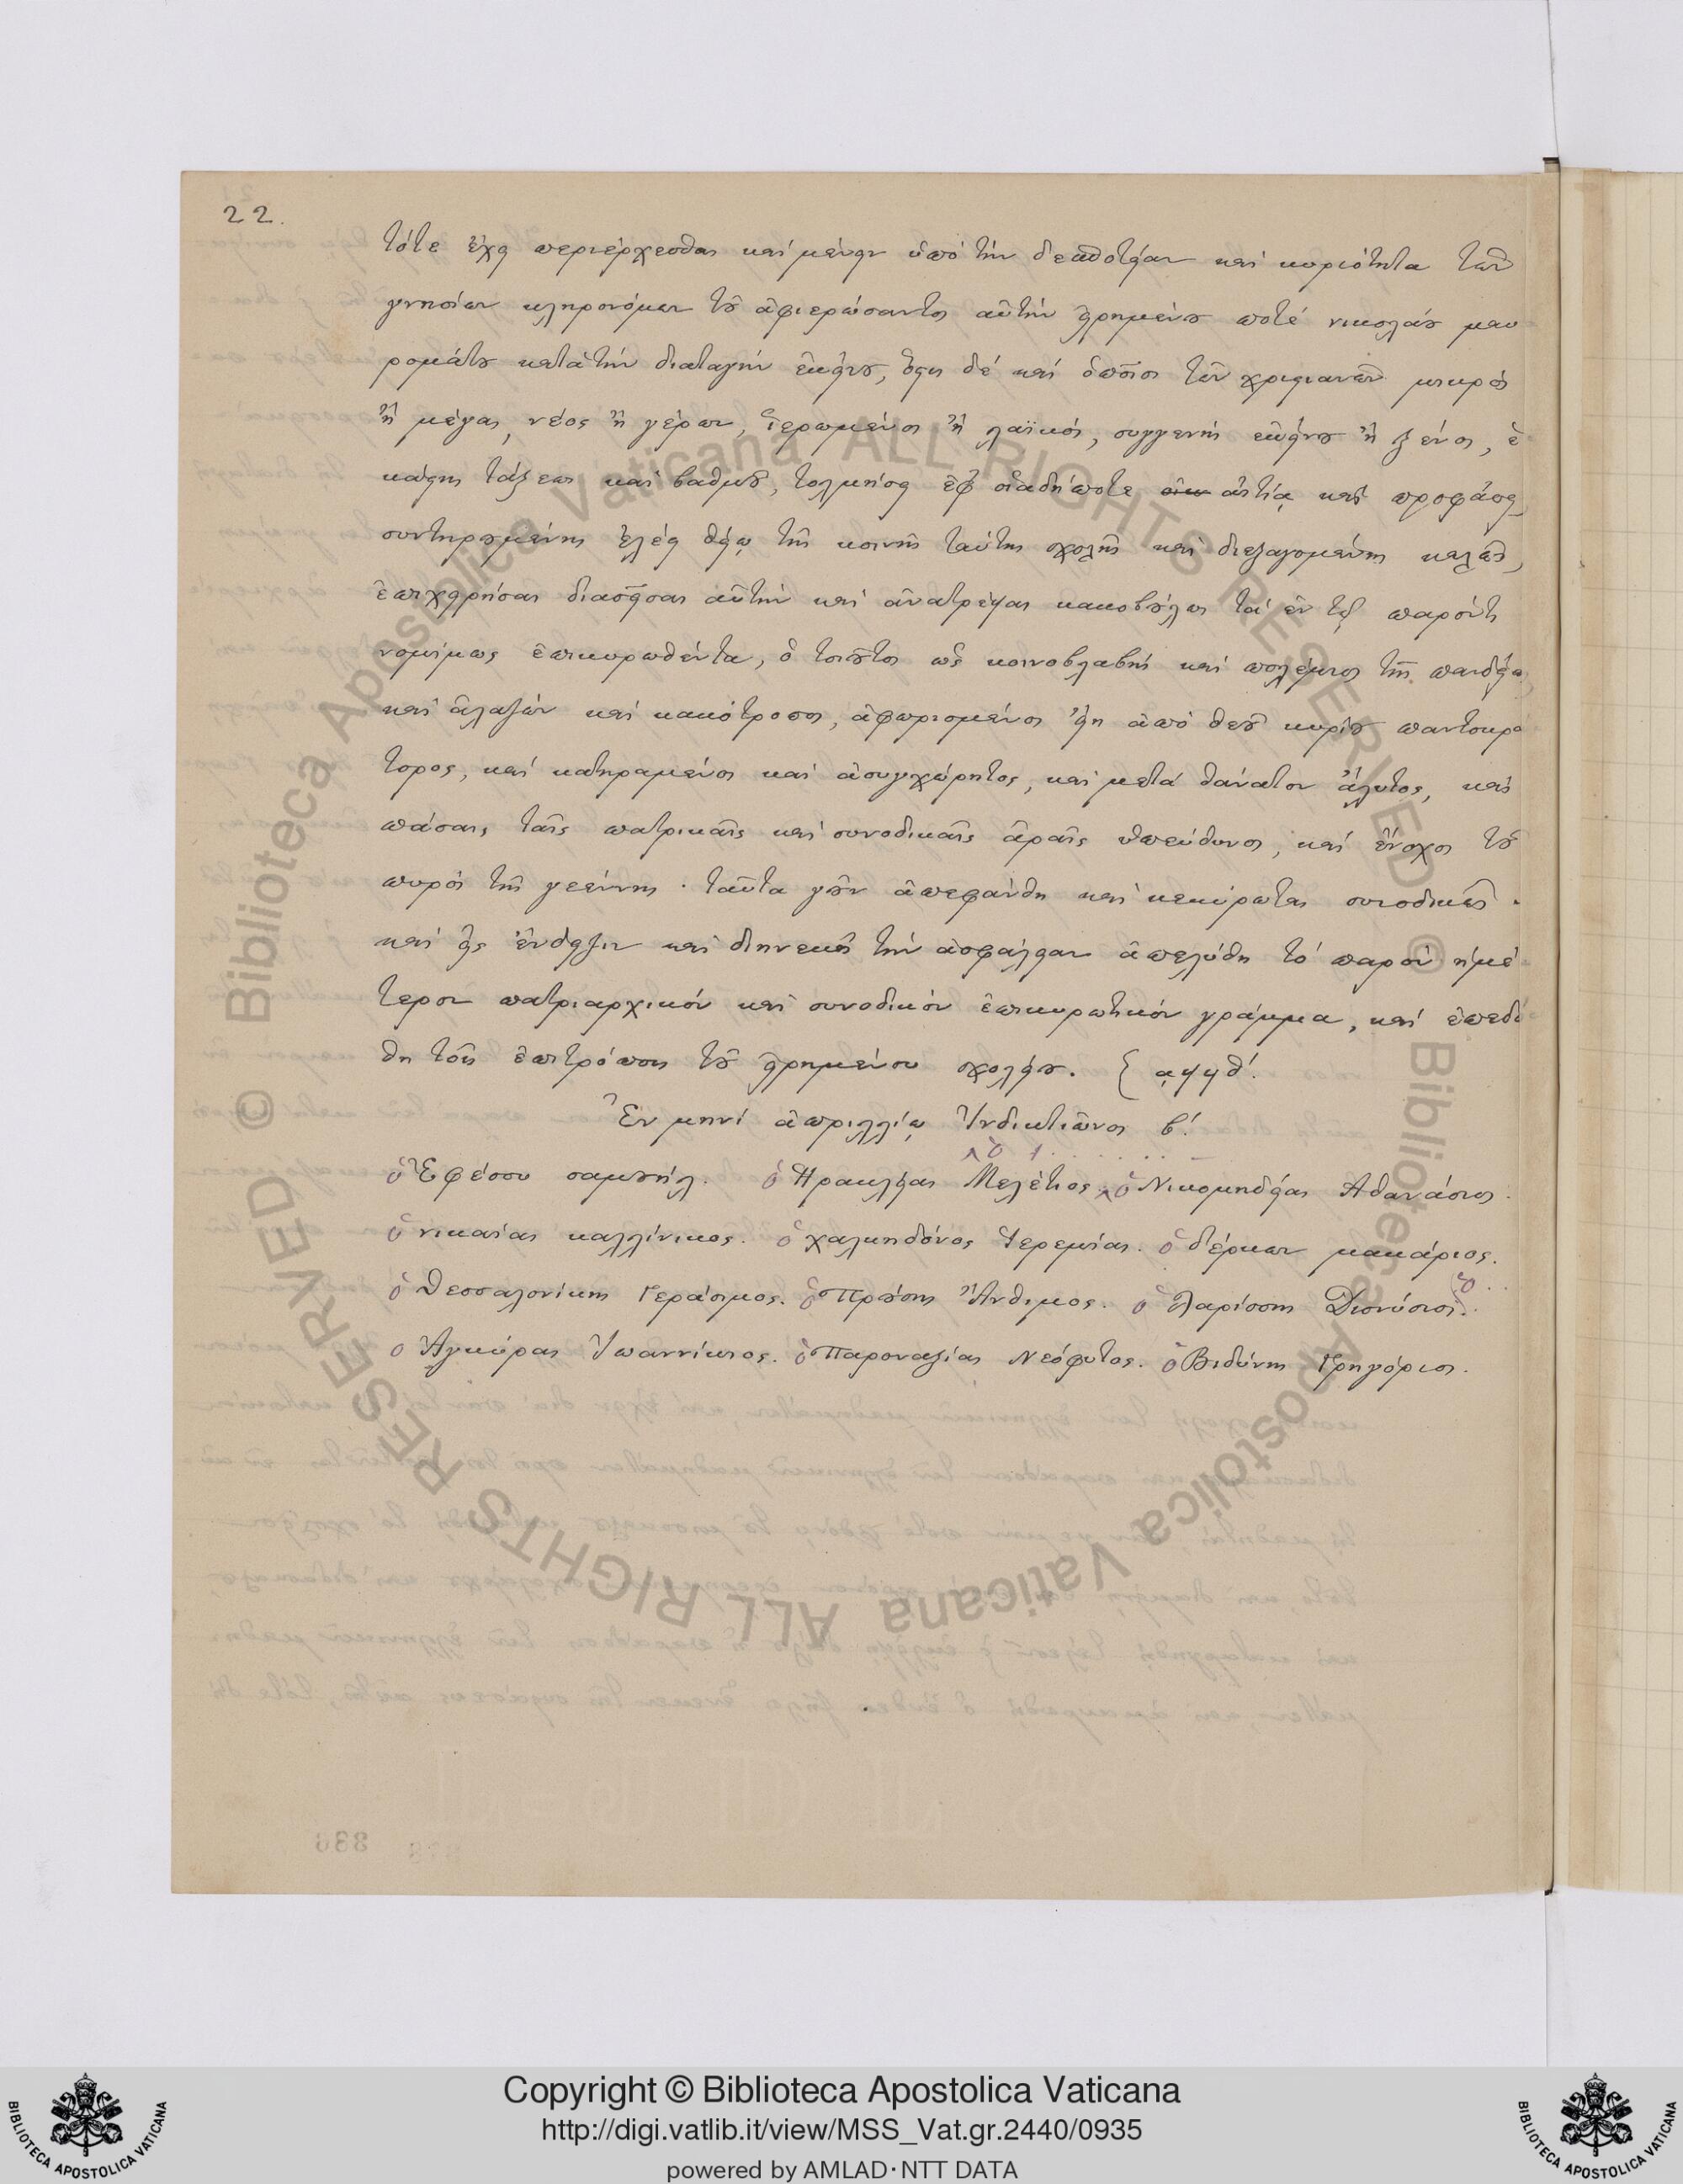 22.
τότε ἔχῃ περιέρχεσθαι καὶ μένειν ὑπὸ τὴν δεσποτείαν καὶ κυριότητα τῶν
γνησίων κληρονόμων τοῦ ἀφιερώσαντος αὐτὴν εἰρημένου ποτὲ νικολάου μαυ
ρομάτου κατὰ τὴν διαταγὴν ἐκείνου, ὅστις δὲ καὶ ὁποῖος τῶν χριστιανῶν μικρὸς
ἢ μέγας, νέος ἢ γέρων, ἱερωμένος ἢ λαϊκός, συγγενὴς ἐκείνου ἢ ξένος, ἑ
κάστης τάξεως καὶ βαθμοῦ, τολμήσῃ ἐφ' οἱαδήποτε αἰτίᾳ καὶ προφάσει,
συντηρουμένης ἐλέει θείῳ τῆς κοινῆς ταύτης σχολῆς καὶ διεξαγομένης καλῶς,
ἐπιχειρήσας διασεῖσαι αὐτὴν καὶ ἀνατρέψαι κακοβούλως τὰ ἐν τῷ παρόντι
νομίμως ἐπικυρωθέντα, ὁ τοιοῦτος ὡς κοινοβλαβὴς καὶ πολέμιος τῆς παιδείας
καὶ ἀλαζὼν καὶ κακότροπος, ἀφωρισμένος εἴη ἀπὸ θεοῦ κυρίου παντοκρά
τορος, καὶ κατηραμένος καὶ ἀσυγχώρητος, καὶ μετὰ θάνατον ἄλυτος, καὶ
πάσαις ταῖς πατρικαῖς καὶ συνοδικαῖς ἀραῖς ὑπεύθυνος, καὶ ἔνοχος τοῦ
πυρὸς τῆς γεέννης. ταῦτα γοῦν ἀπεφάνθη καὶ κεκύρωται συνοδικῶς.
καὶ εἰς ἔνδειξιν καὶ διηνεκῆ τὴν ἀσφάλειαν ἀπελύθη τὸ παρὸν ἡμέ
τερον πατριαρχικὸν καὶ συνοδικὸν ἐπικυρωτικὸν γράμμα, καὶ ἐπεδό
θη τοῖς ἐπιτρόποις τοῦ εἰρημένου σχολείου. { αψξθ'.
Ἐν μηνὶ ἀπριλλίῳ Ἰνδικτιῶνος β'.
ὁ Ἐφέσου σαμουήλ. ὁ Ἡρακλείας Μελέτιος. ὁ Νικομηδείας Ἀθανάσιος.
ὁ νικαίας καλλίνικος. ὁ χαλκηδόνος Ἱερεμίας. ὁ δέρκων μακάριος.
ὁ Θεσσαλονίκης Γεράσιμος. ὁ Προύσης Ἄνθιμος. ὁ λαρίσσης Διονύσιος.
ὁ Ἀγκύρας Ἰωαννίκιος. ὁ Παροναξίας Νεόφυτος. ὁ Βιδύνης Γρηγόριος.
Copyright © Biblioteca Apostolica Vaticana
http://digi.vatlib.it/view/MSS_Vat.gr.2440/0935
powered by AMLAD·NTT DATA